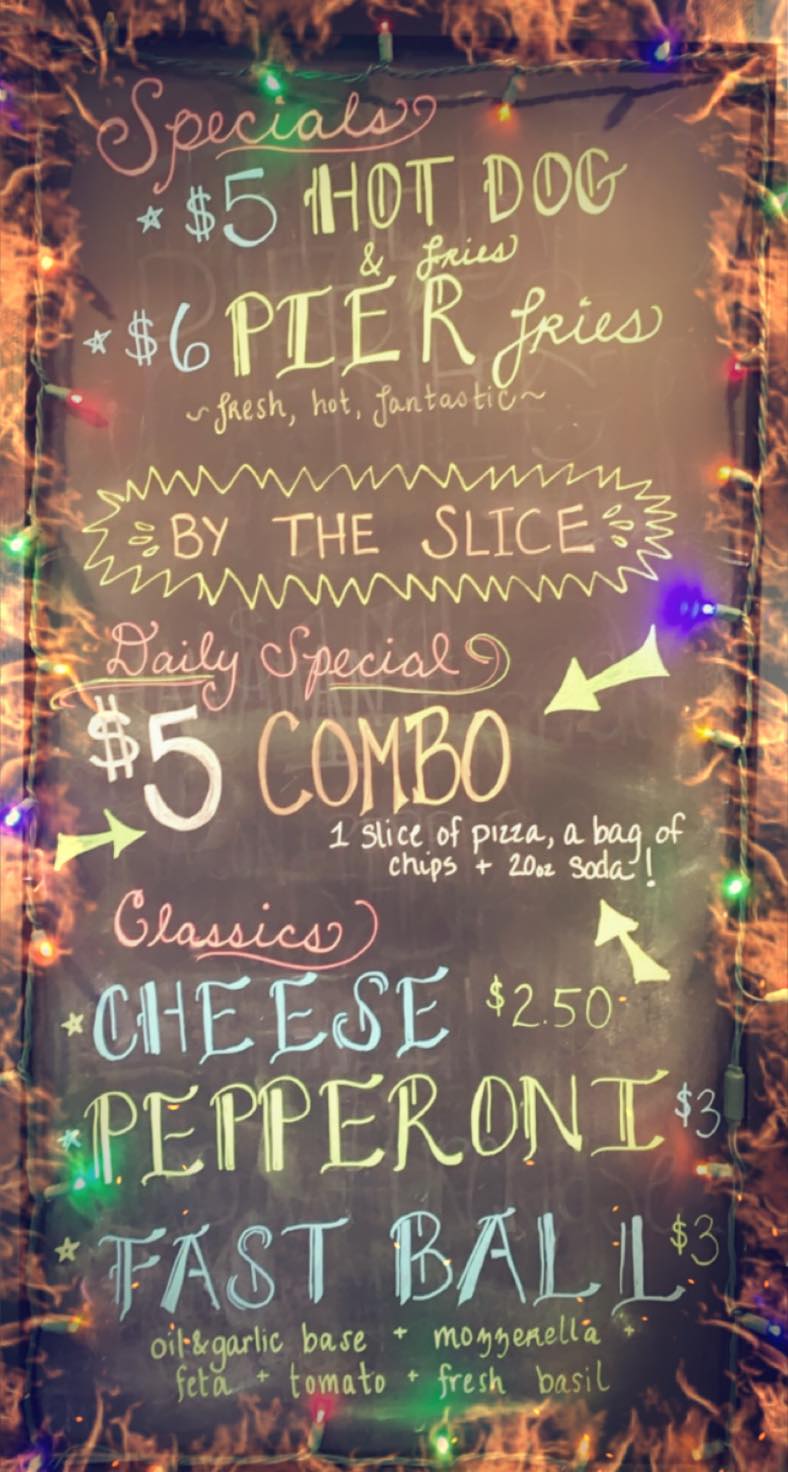 Specials
$5 HOT DOG
& fries
$6 PIER fries
~fresh, hot, fantastic~
BY THE SLICE
Daily Special
$5 COMBO
1 slice of pizza, a bag of
chips + 20oz soda!
Classics
CHEESE $2.50
PEPPERONI $3
FAST BALL $3
oil&garlic base + mozzerella +
feta + tomato + fresh basil